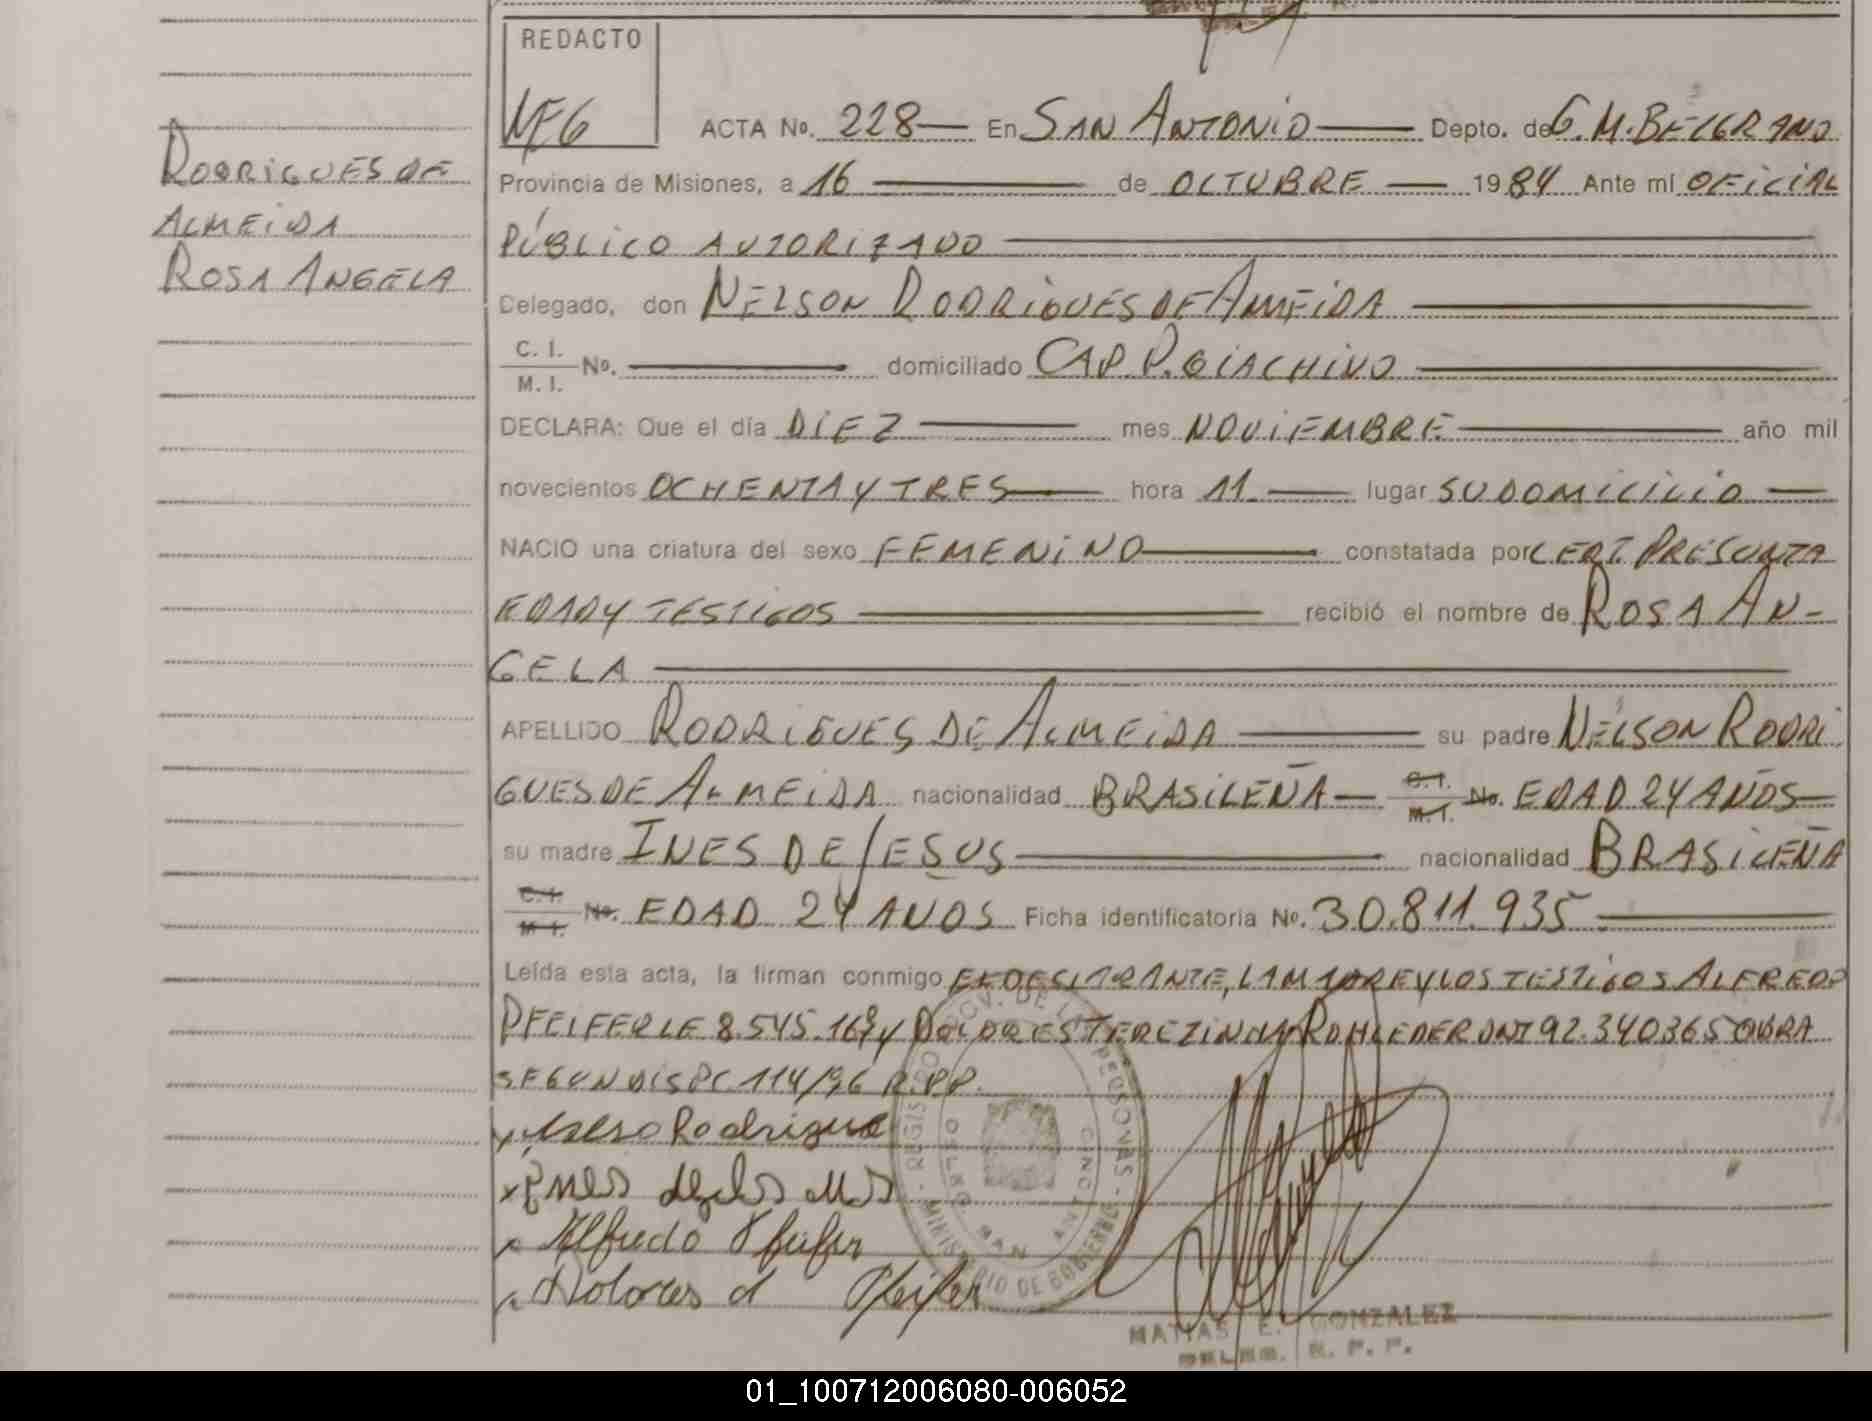 REDACTO
RODRIGUES DE
ALMEIDA
ROSA ANGELA
ACTA No. 228 En SAN ANTONIO Depto. de G. M. BELGRANO
Provincia de Misiones, a 16 de OCTUBRE 1984 Ante mí OFICIAL
PÚBLICO AUTORIZADO
Delegado, don NELSON RODRIGUES DE ALMEIDA
C. I.
M. I. No. domiciliado CAP. P. GIACHINO
DECLARA: Que el día DIEZ mes NOVIEMBRE año mil
novecientos OCHENTA Y TRES hora 11 lugar SU DOMICILIO
NACIO una criatura del sexo FEMENINO constatada por CERT. PRESUNTA
EDAD Y TESTIGOS recibió el nombre de ROSA AN-
GELA
APELLIDO RODRIGUES DE ALMEIDA su padre NELSON RODRI
GUES DE ALMEIDA nacionalidad BRASILEÑA C. I. M. I. No. EDAD 24 AÑOS
su madre INES DE JESUS nacionalidad BRASILEÑA
C. I. M. I. No. EDAD 24 AÑOS Ficha identificatoria No. 30.811.935
Leída esta acta, la firman conmigo EL DECLARANTE, LA MADRE Y LOS TESTIGOS ALFREDO
PFEIFER LE 8.545.169 y DOLORES TEREZINHA ROHLEDER DNI 92.340365 OBRA
SEGUN DISPC. 114/96 R.P.P.
Rodrigue
Ines
Alfredo Pfeifer
Dolores d Pfeifer
REGISTRO PROV. DE LAS PERSONAS
MINISTERIO DE GOBIERNO
SAN ANTONIO
MATIAS E. GONZALEZ
DELEG. R. P. P.
01_100712006080-006052